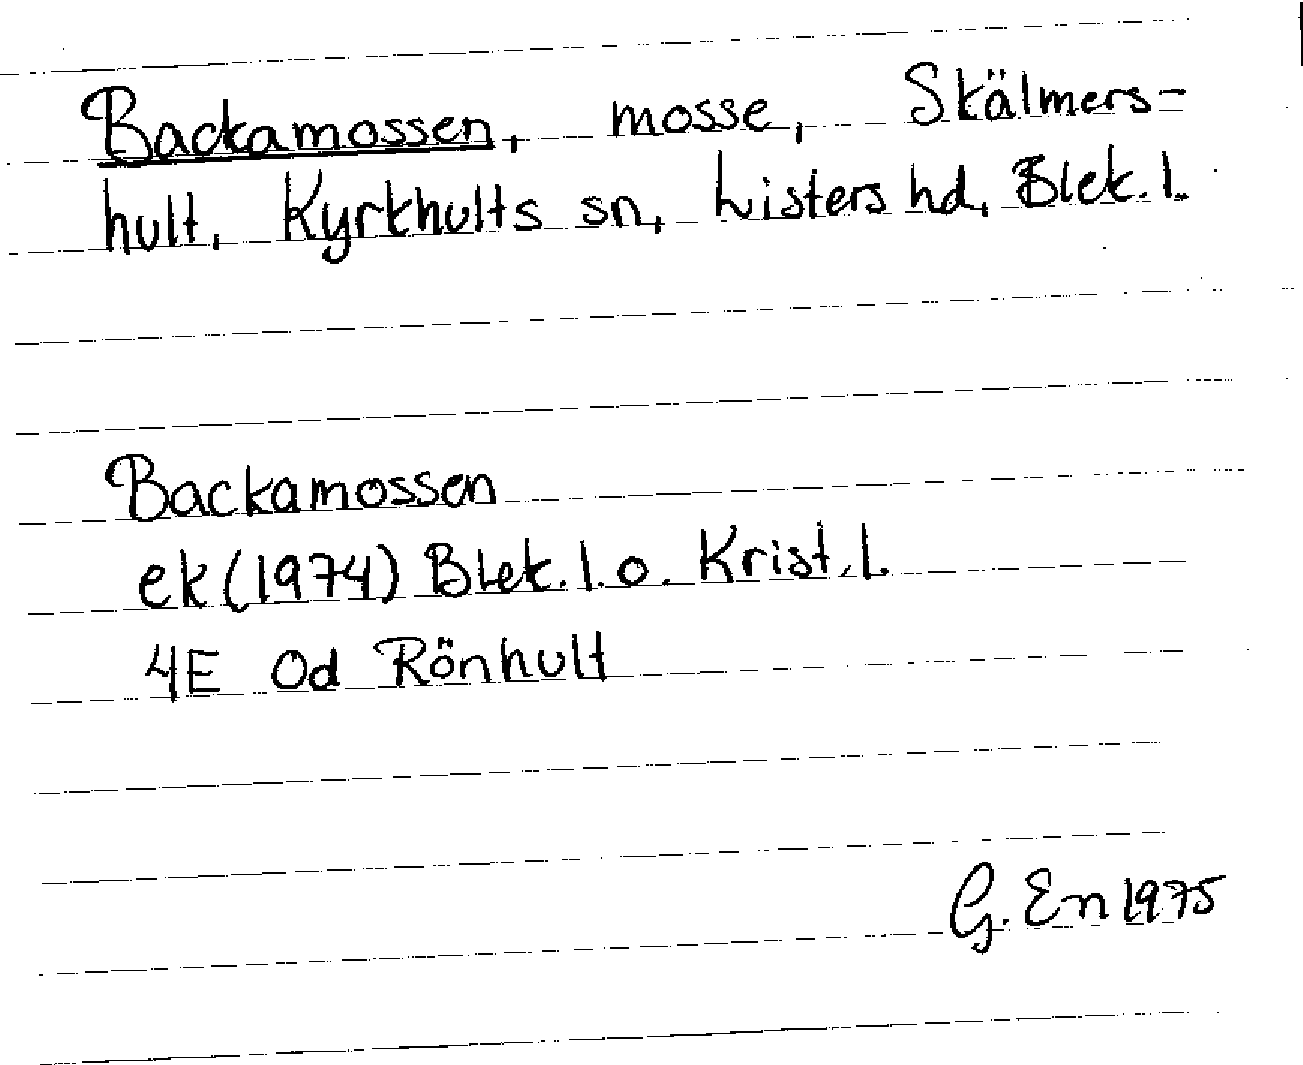 Backamossen, mosse, Skälmers=
hult, Kyrkhults sn, Listers hd, Blek. l.
Backamossen
ek (1974) Blek. l. o. Krist. l.
4E 0d Rönhult
G. En 1975